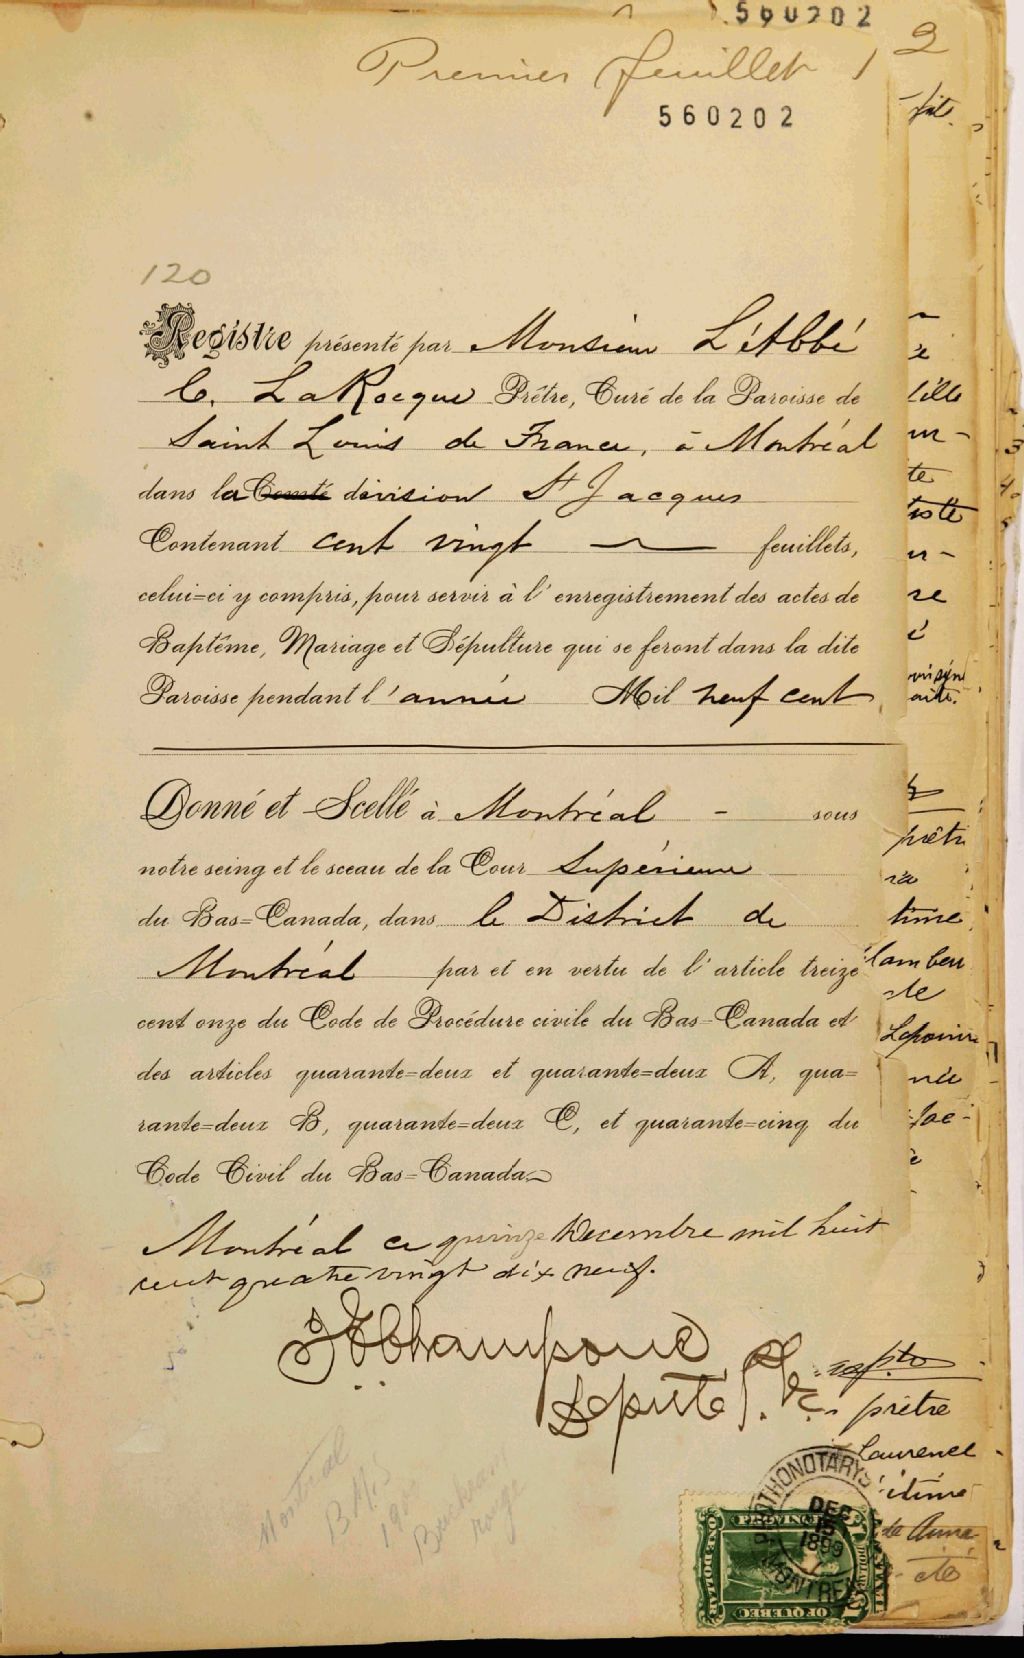 560202
Premier feuillet 1
2
560202
120
Registre présenté par Monsieur L'Abbé
C. LaRocque Prêtre, Curé de la Paroisse de
Saint Louis de France, à Montréal
dans la Comté division St Jacques
Contenant cent vingt feuillets,
celui=ci y compris, pour servir à l'enregistrement des actes de
Baptême, Mariage et Sépulture qui se feront dans la dite
Paroisse pendant l'année Mil neuf cent
Donné et Scellé à Montréal - sous
notre seing et le sceau de la Cour Supérieure
du Bas=Canada, dans le District de
Montréal par et en vertu de l'article treize
cent onze du Code de Procédure civile du Bas-Canada et
des articles quarante=deux et quarante=deux A, qua=
rante=deux B, quarante=deux C, et quarante=cinq du
Code Civil du Bas=Canada
Montréal ce quinze Decembre mil huit
cent quatre vingt dix neuf.
Député P.
prêtre
Laurence
Montréal
B.M.S
rouge
PROTHONOTARYS
DEC
15
1899
MONTREAL
PROVINCE
ONE DOLLAR
OF QUEBEC